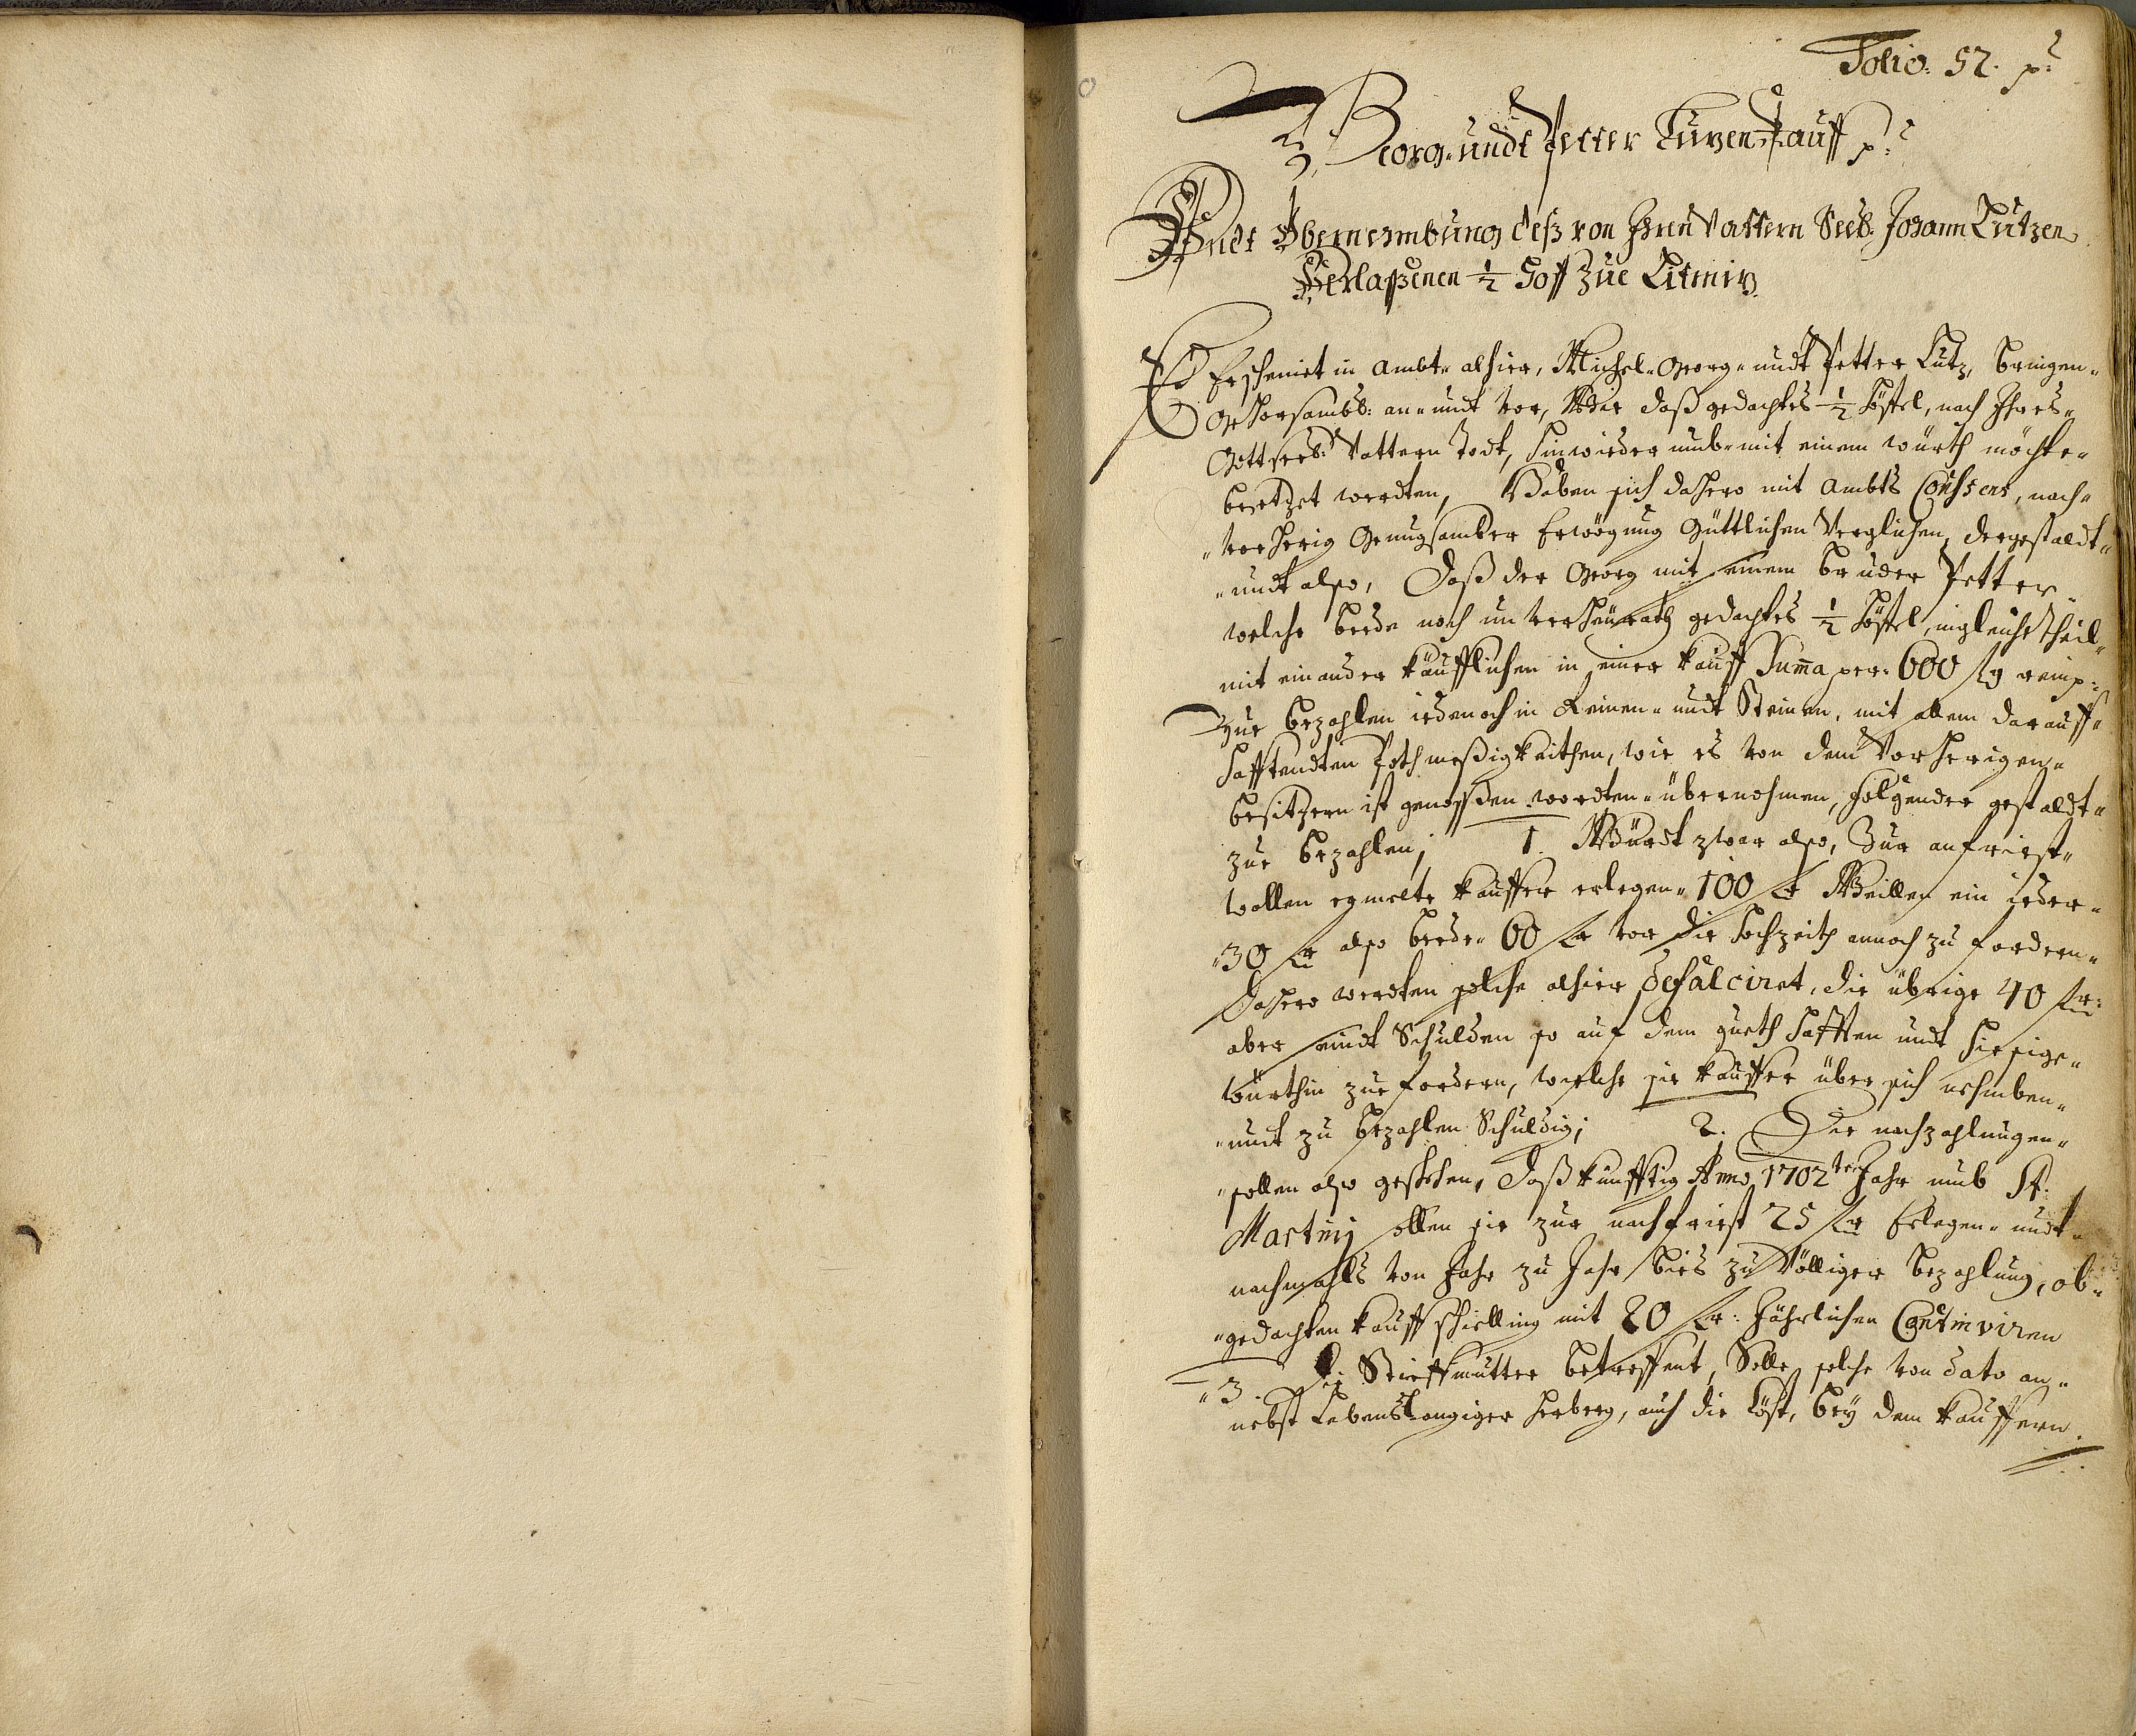 Folio: 52. p:
Georg- undt Petter Lutzen Kauff p:
Undt Übernembung deß von Ihren Vattern Seel: Johann Lutzen
Verlaßenen ½ Hoff zue Litmiz.
Es Erscheinet in Ambt- alhier, Michel- Georg- undt Petter Lutz, bringen-
Gehorsambl: an- undt vor, Wie daß gedachtes ½ höffel, nach Ihres-
Gott seel: Vattern Todt, hinwieder umb- mit einem würth möchte-
besetzet werdten, Haben sich dahero mit Ambts Consens, nach-
vorherig Genugsamber Erwögung Güttlichen Verglichen, dergestaldt-
undt also, Daß der Georg mit seinem bruder Petter
welche beede noch unverheürath gedachtes ½ höffel, ingleiche theil-
mit einander käufflichen in einer kauff Sum̄a per- 600 fl reinß:
Zue bezahlen iedennoch in Reinen- undt Steinen, mit allem darauff-
hafftendten Pothmeßigkeithen, wie es von dem Vorherigen-
besitzern ist genoßen wordten- übernohmen, folgender gestaldt-
zue bezahlen; 1. Würdt zwar also, Zur anfriest-
wollen egmelte kauffer erlegen- 100 fl Weillen ein ieder-
30 fl also beede- 60 fl vor die hochzeith annoch zu fordern-
dahero werdten solche alhier defalciret, die übrige 40 fl:
aber seindt Schulden so auf dem gueth hafften undt hiesige-
würthin zue fordern, welche sie kauffer über sich nehmben-
undt zu bezahlen Schuldig; 2. Die nachzahlungen-
sollen also geschehen, Daß künfftig Anno 1702ten Jahr umb St:
Martinj sollen sie zur nachfriest 25 fl Erlegen- undt-
nachmahls von Jahr zu Jahr bies zu Völliger bezahlung, ob-
gedachten kauff schielling mit 20 fl: Jährlichen Continuiren
3. Die Stieffmutter betreffent, Solle solche von dato an-
nebst Lebenslangiger herberg, auch die köst, bey dem kauffern.